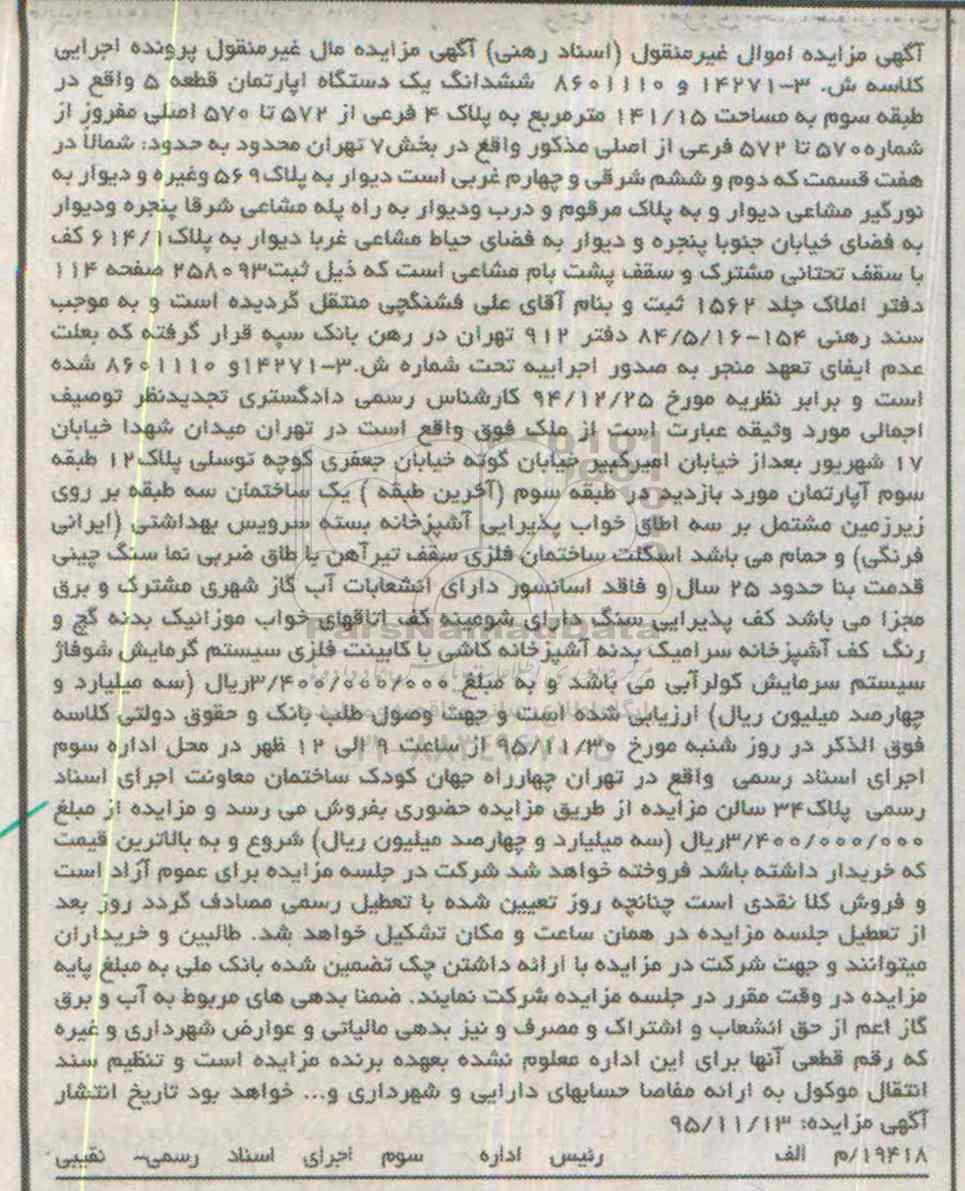 آگهی مزایده اموال غیرمنقول (اسناد رهنی) آگهی مزایده مال غیرمنقول پرونده اجرایی
کلاسه ش. ۳-۱۴۲۷۱ و ۸۶۰۱۱۱۰ ششدانگ یک دستگاه اپارتمان قطعه ۵ واقع در
طبقه سوم به مساحت ۱۴۱/۱۵ مترمربع به پلاک ۴ فرعی از ۵۷۲ تا ۵۷۰ اصلی مفروز از
شماره۵۷۰ تا ۵۷۲ فرعی از اصلی مذکور واقع در بخش۷ تهران محدود به حدود: شمالاً در
هفت قسمت که دوم و ششم شرقی و چهارم غربی است دیوار به پلاک۵۶۹ وغیره و دیوار به
نورگیر مشاعی دیوار و به پلاک مرقوم و درب ودیوار به راه پله مشاعی شرقا پنجره ودیوار
به فضای خیابان جنوبا پنجره و دیوار به فضای حیاط مشاعی غربا دیوار به پلاک۶۱۴/۱ کف
با سقف تحتانی مشترک و سقف پشت بام مشاعی است که ذیل ثبت۲۵۸۰۹۳ صفحه ۱۱۴
دفتر املاک جلد ۱۵۶۲ ثبت و بنام آقای علی فشنگچی منتقل گردیده است و به موجب
سند رهنی ۱۵۴-۸۴/۵/۱۶ دفتر ۹۱۲ تهران در رهن بانک سپه قرار گرفته که بعلت
عدم ایفای تعهد منجر به صدور اجراییه تحت شماره ش.۳-۱۴۲۷۱و ۸۶۰۱۱۱۰ شده
است و برابر نظریه مورخ ۹۴/۱۲/۲۵ کارشناس رسمی دادگستری تجدیدنظر توصیف
اجمالی مورد وثیقه عبارت است از ملک فوق واقع است در تهران میدان شهدا خیابان
۱۷ شهریور بعداز خیابان امیرکبیر خیابان گوته خیابان جعفری کوچه توسلی پلاک۱۲ طبقه
سوم آپارتمان مورد بازدید در طبقه سوم (آخرین طبقه ) یک ساختمان سه طبقه بر روی
زیرزمین مشتمل بر سه اطاق خواب پذیرایی آشپزخانه بسته سرویس بهداشتی (ایرانی
فرنگی) و حمام می باشد اسکلت ساختمان فلزی سقف تیرآهن با طاق ضربی نما سنگ چینی
قدمت بنا حدود ۲۵ سال و فاقد اسانسور دارای انشعابات آب گاز شهری مشترک و برق
مجزا می باشد کف پذیرایی سنگ دارای شومینه کف اتاقهای خواب موزائیک بدنه گچ و
رنگ کف آشپزخانه سرامیک بدنه آشپزخانه کاشی با کابینت فلزی سیستم گرمایش شوفاژ
سیستم سرمایش کولرآبی می باشد و به مبلغ ۳/۴۰۰/۰۰۰/۰۰۰ریال (سه میلیارد و
چهارصد میلیون ریال) ارزیابی شده است و جهت وصول طلب بانک و حقوق دولتی کلاسه
فوق الذکر در روز شنبه مورخ ۹۵/۱۱/۳۰ از ساعت ۹ الی ۱۲ ظهر در محل اداره سوم
اجرای اسناد رسمی واقع در تهران چهارراه جهان کودک ساختمان معاونت اجرای اسناد
رسمی پلاک۳۴ سالن مزایده از طریق مزایده حضوری بفروش می رسد و مزایده از مبلغ
۳/۴۰۰/۰۰۰/۰۰۰ریال (سه میلیارد و چهارصد میلیون ریال) شروع و به بالاترین قیمت
که خریدار داشته باشد فروخته خواهد شد شرکت در جلسه مزایده برای عموم آزاد است
و فروش کلا نقدی است چنانچه روز تعیین شده با تعطیل رسمی مصادف گردد روز بعد
از تعطیل جلسه مزایده در همان ساعت و مکان تشکیل خواهد شد. طالبین و خریداران
میتوانند و جهت شرکت در مزایده با ارائه داشتن چک تضمین شده بانک ملی به مبلغ پایه
مزایده در وقت مقرر در جلسه مزایده شرکت نمایند. ضمنا بدهی های مربوط به آب و برق
گاز اعم از حق انشعاب و اشتراک و مصرف و نیز بدهی مالیاتی و عوارض شهرداری و غیره
که رقم قطعی آنها برای این اداره معلوم نشده بعهده برنده مزایده است و تنظیم سند
انتقال موکول به ارائه مفاصا حسابهای دارایی و شهرداری و... خواهد بود تاریخ انتشار
آگهی مزایده: ۹۵/۱۱/۱۳
۱۹۴۱۸/م الف رئیس اداره سوم اجرای اسناد رسمی- نقیبی
ParsNamadData